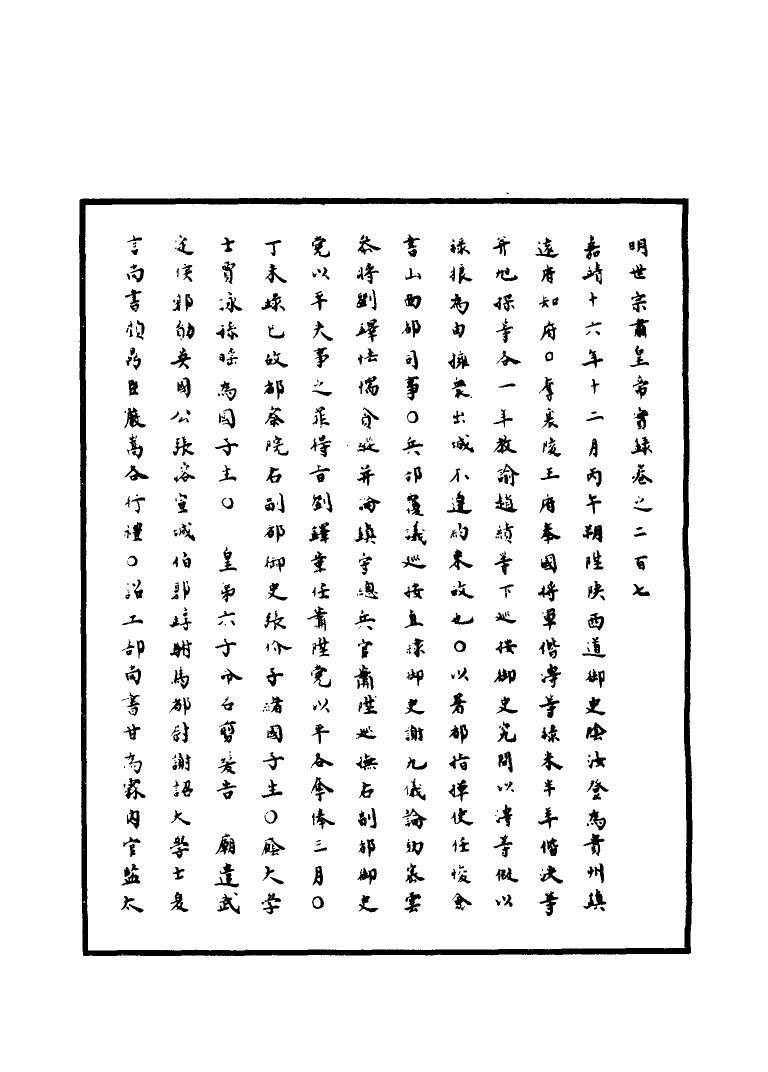 明世宗肅皇帝實錄卷之二百七
嘉靖十六年十二月丙午朔陞陝西道御史陰汝登為貴州鎮
遠府知府○奪襄陵王府奉國將軍偕㳯等祿米半年偕泱等
并旭㮛等各一年教諭趙績等下巡按御史究問以㳯等假以
祿粮為由擁眾出城不遵約束故也○以署都指揮使任惟僉
書山西都司事○兵部覆議巡按直隸御史謝九儀論劾密雲
叅將劉鐸怯懦貪縱并論鎮守總兵官蕭陞巡撫右副都御史
党以平失事之罪得旨劉鐸革任蕭陞党以平各奪俸三月○
丁未錄已故都察院右副都御史張介子緒國子生○廕大學
士賈泳孫曔為國子生○ 皇第六子命名剪髮告 廟遣武
定侯郭勛英國公張溶宣城伯郭㻿駙馬都尉謝詔大學士夏
言尚書鼎臣嚴嵩各行禮○詔工部尚書甘為霖內官監太